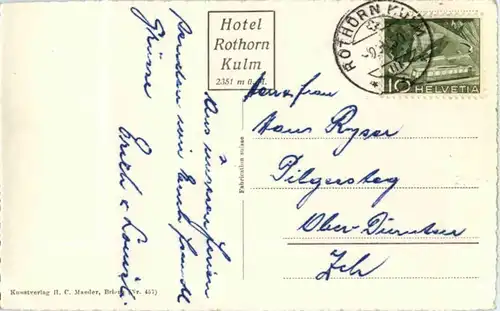 Hotel
Rothorn
Kulm
2351 m ü. M.
ROTHORN KULM
10 HELVETIA
Aus unseren Ferien
senden wir Euch freundl
Grüsse
Erich
Fabrication suisse
Hans Ryser
Pilgersteg
Ober-Dürnten
Zch
Kunstverlag H. C. Maeder, Brienz (Nr. 451)